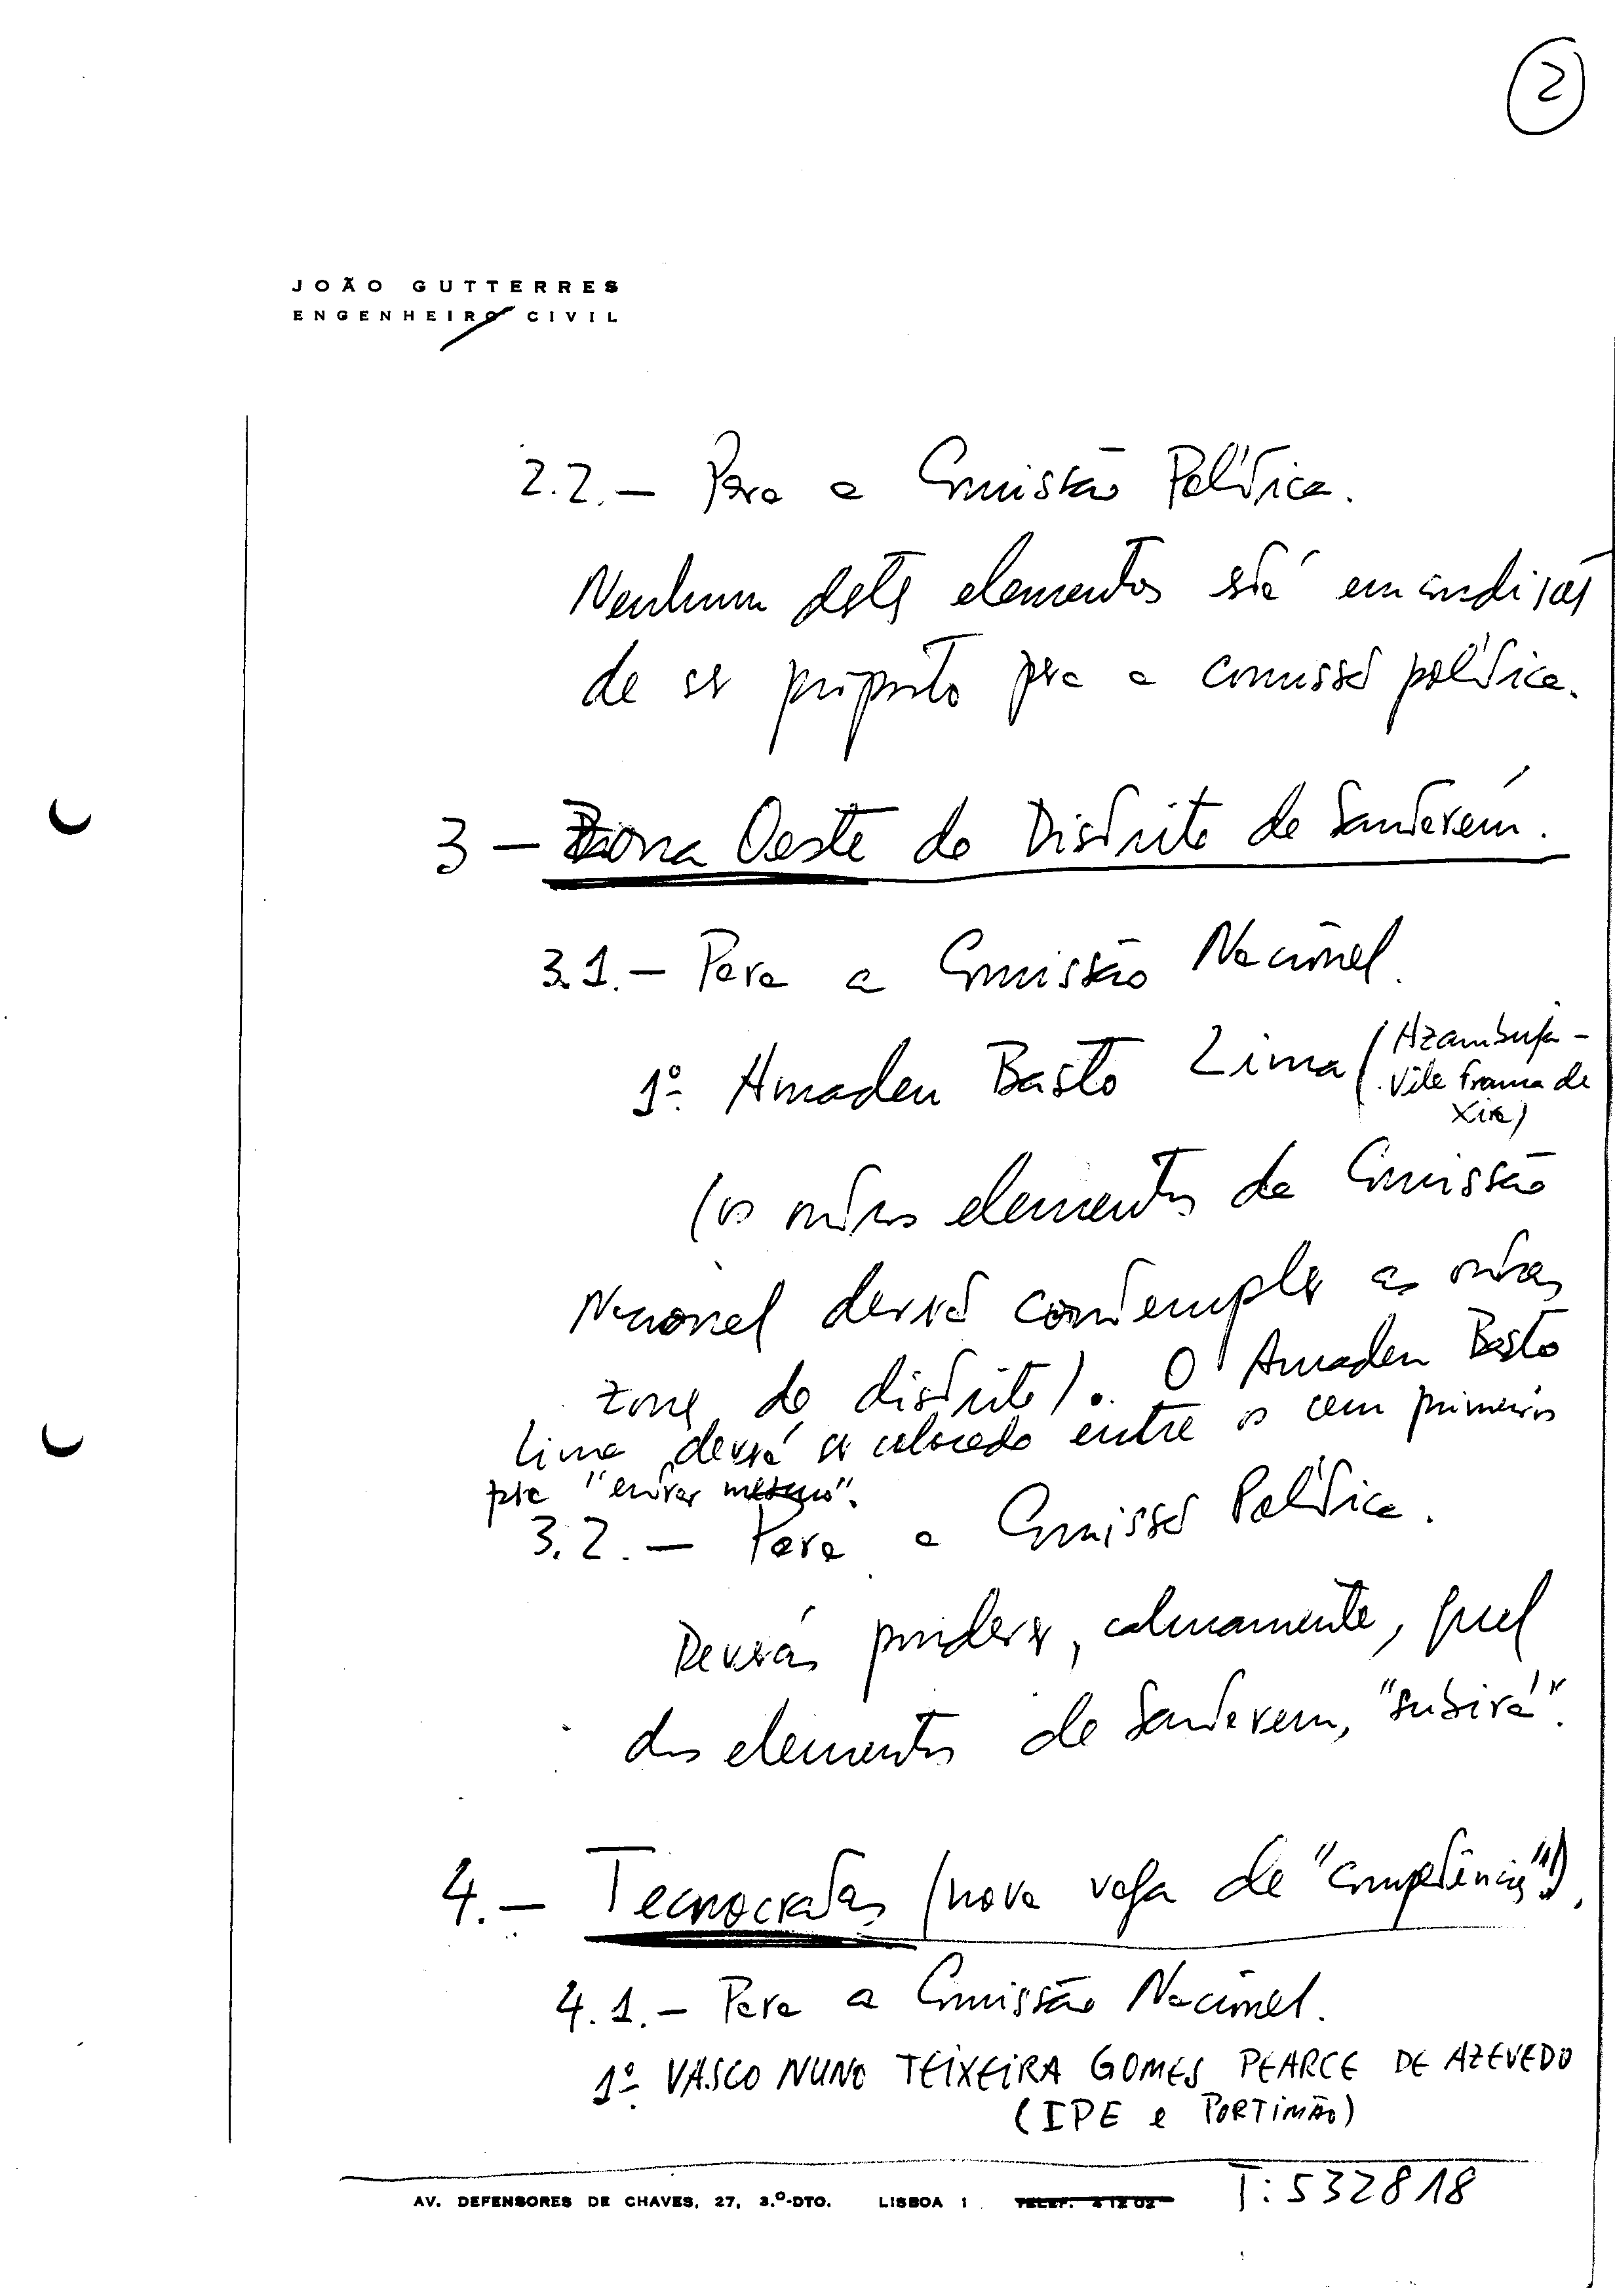 2
JOÃO GUTTERRES
ENGENHEIRO CIVIL
2.2.- Para a Comissão Política.
Nenhum destes elementos está em condições
de ser proposto para a comissão política.
3 - Zona Oeste do Distrito de Santarém.
3.1.- Para a Comissão Nacional.
1º Amadeu Basto Lima (Azambuja -
Vila Franca de
Xira)
(os outros elementos da Comissão
Nacional deverão contemplar as outras
zonas do distrito). O Amadeu Basto
Lima deverá ser colocado entre os cem primeiros
para "entrar mesmo".
3.2.- Para a Comissão Política.
Deverás ponderar, calmamente, qual
dos elementos de Santarem, "subirá".
4.- Tecnocratas (nova vaga de "competências"!).
4.1.- Para a Comissão Nacional.
1º VASCO NUNO TEIXEIRA GOMES PEARCE DE AZEVEDO
(IPE e PORTIMÃO)
AV. DEFENSORES DE CHAVES, 27, 3.º-DTO. LISBOA 1 TELEF. 4 12 02 T: 532818